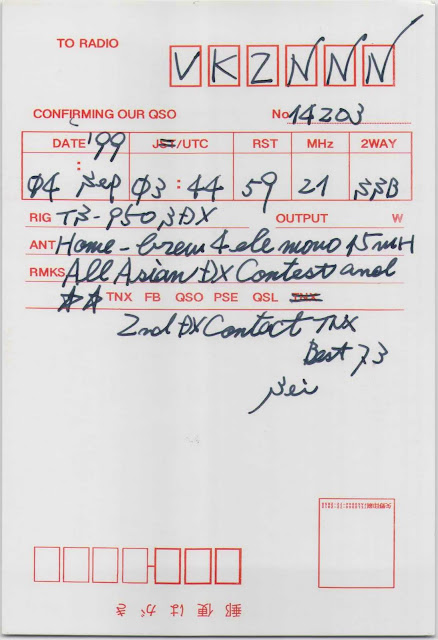 TO RADIO VK2NNN
CONFIRMING OUR QSO No. 14203
DATE '99 JST/UTC RST MHz 2WAY
Ø4 Sep Ø3:44 59 21 SSB
RIG TS-950SDX OUTPUT W
ANT Home-brew 4 ele mono 15mH
RMKS All Asian DX Contest and
☆☆ TNX FB QSO PSE QSL TNX
2nd DX Contact TNX
Best 73
Sei
郵便はがき